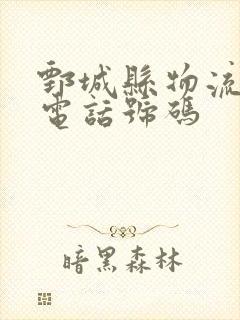 鄄城縣物流
電話號碼
暗黑森林